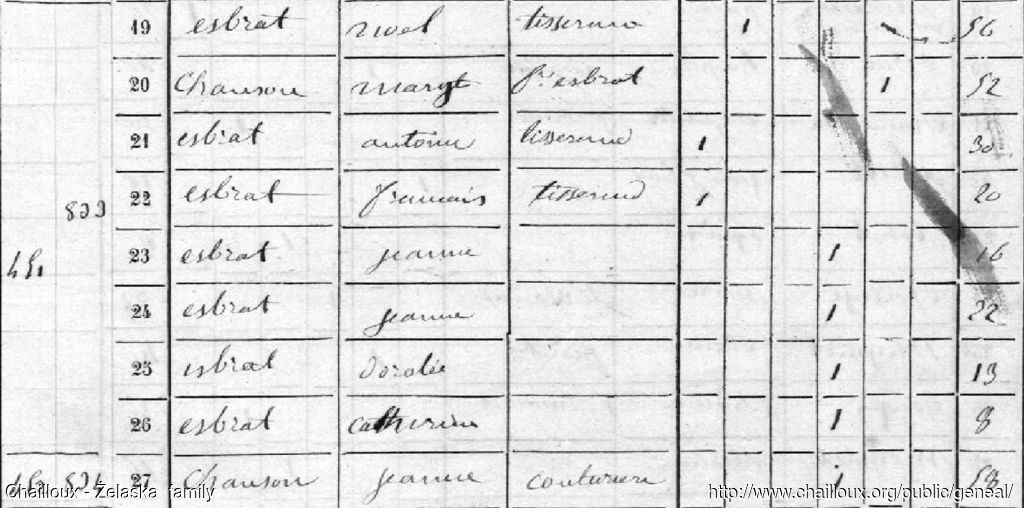 19 esbrat noel tisserand 1 56
20 Chanson margt fe esbrat 1 52
21 esbrat antoine tisserand 1 30
833 22 esbrat francais tisserand 1 20
23 esbrat jeanne 1 16
24 esbrat jeanne 1 22
25 esbrat dorotée 1 13
26 esbrat catherine 1 8
834 27 Chanson jeanne couturiere 1 58
Chailloux - Zelaska family
http://www.chailloux.org/public/geneal/